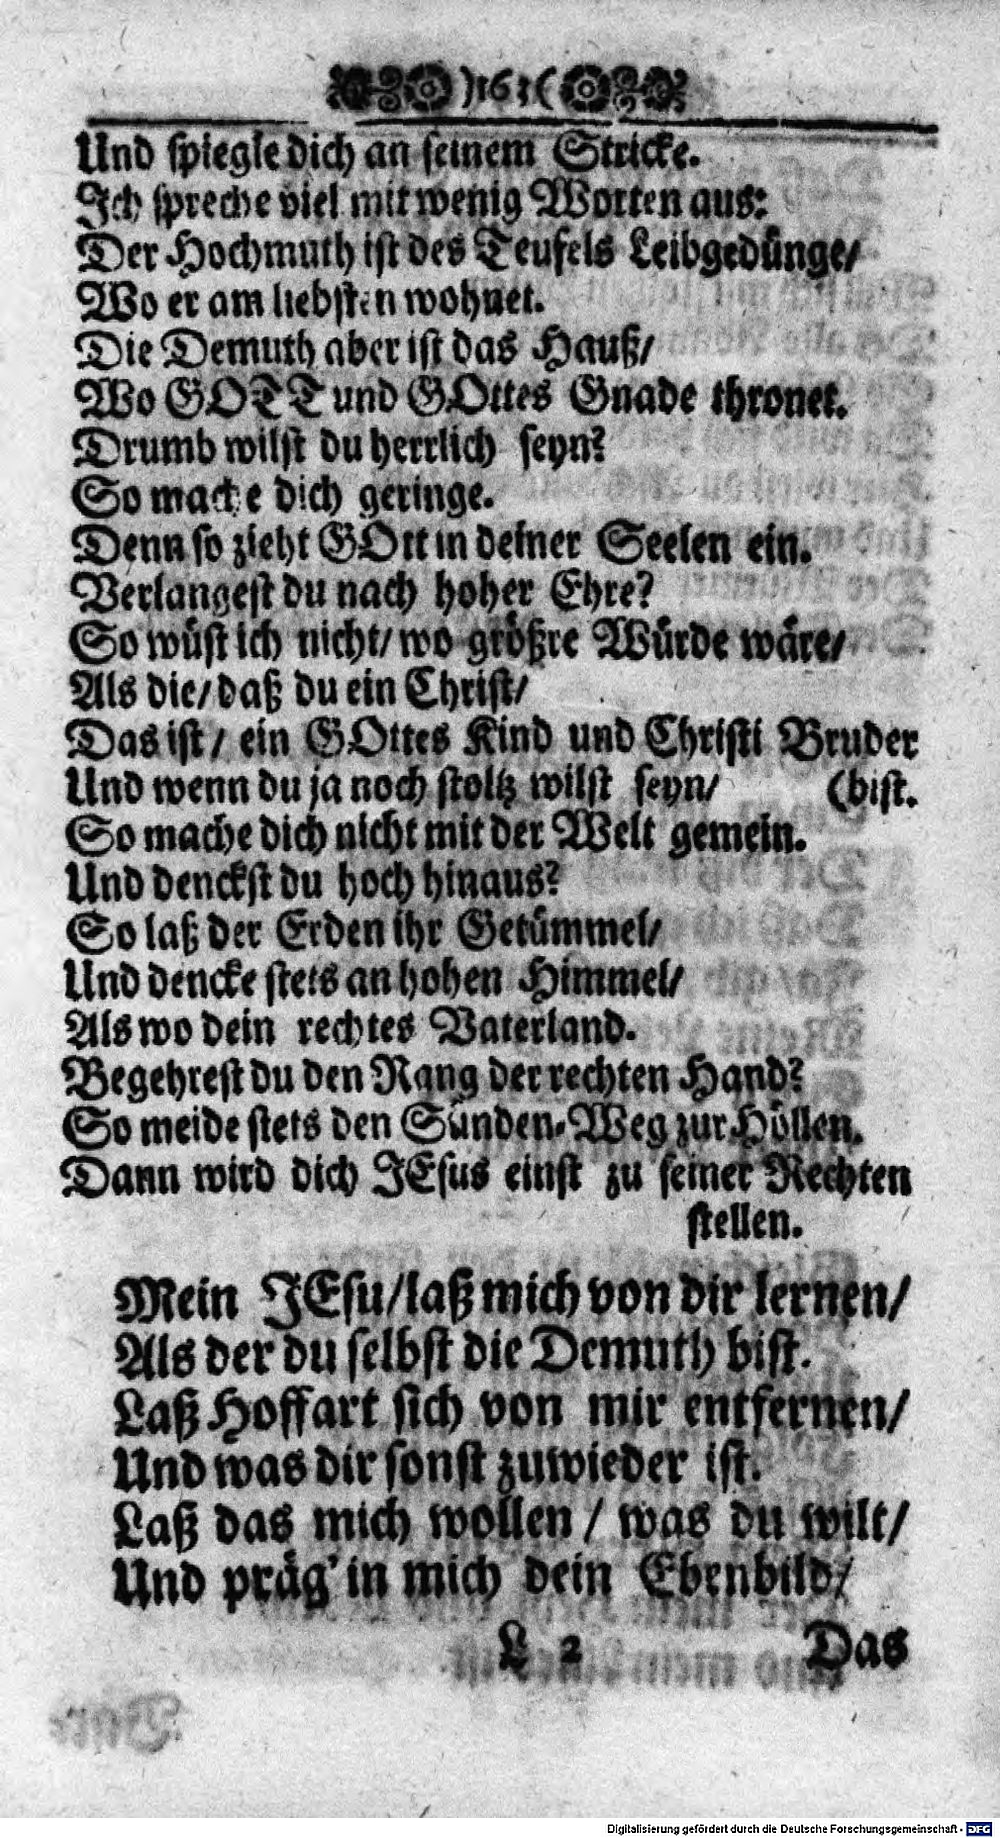 )163(
Und spiegle dich an seinem Stricke.
Ich spreche viel mit wenig Worten aus:
Der Hochmuth ist des Teufels Leibgedünge/
Wo er am liebsten wohnet.
Die Demuth aber ist das Hauß/
Wo GOTT und GOttes Gnade thronet.
Drumb wilst du herrlich seyn?
So mache dich geringe.
Denn so zieht GOtt in deiner Seelen ein.
Verlangest du nach hoher Ehre?
So wüst ich nicht/ wo größre Würde wäre/
Als die/ daß du ein Christ/
Das ist/ ein GOttes Kind und Christi Bruder
Und wenn du ja noch stoltz wilst seyn/ (bist.
So mache dich nicht mit der Welt gemein.
Und denckst du hoch hinaus?
So laß der Erden ihr Getümmel/
Und dencke stets an hohen Himmel/
Als wo dein rechtes Vaterland.
Begehrest du den Rang der rechten Hand?
So meide stets den Sünden-Weg zur Höllen.
Dann wird dich JEsus einst zu seiner Rechten
stellen.
Mein JEsu/ laß mich von dir lernen/
Als der du selbst die Demuth bist.
Laß Hoffart sich von mir entfernen/
Und was dir sonst zuwieder ist.
Laß das mich wollen / was du wilt/
Und präg' in mich dein Ebenbild/
L 2 Das
Digitalisierung gefördert durch die Deutsche Forschungsgemeinschaft - DFG